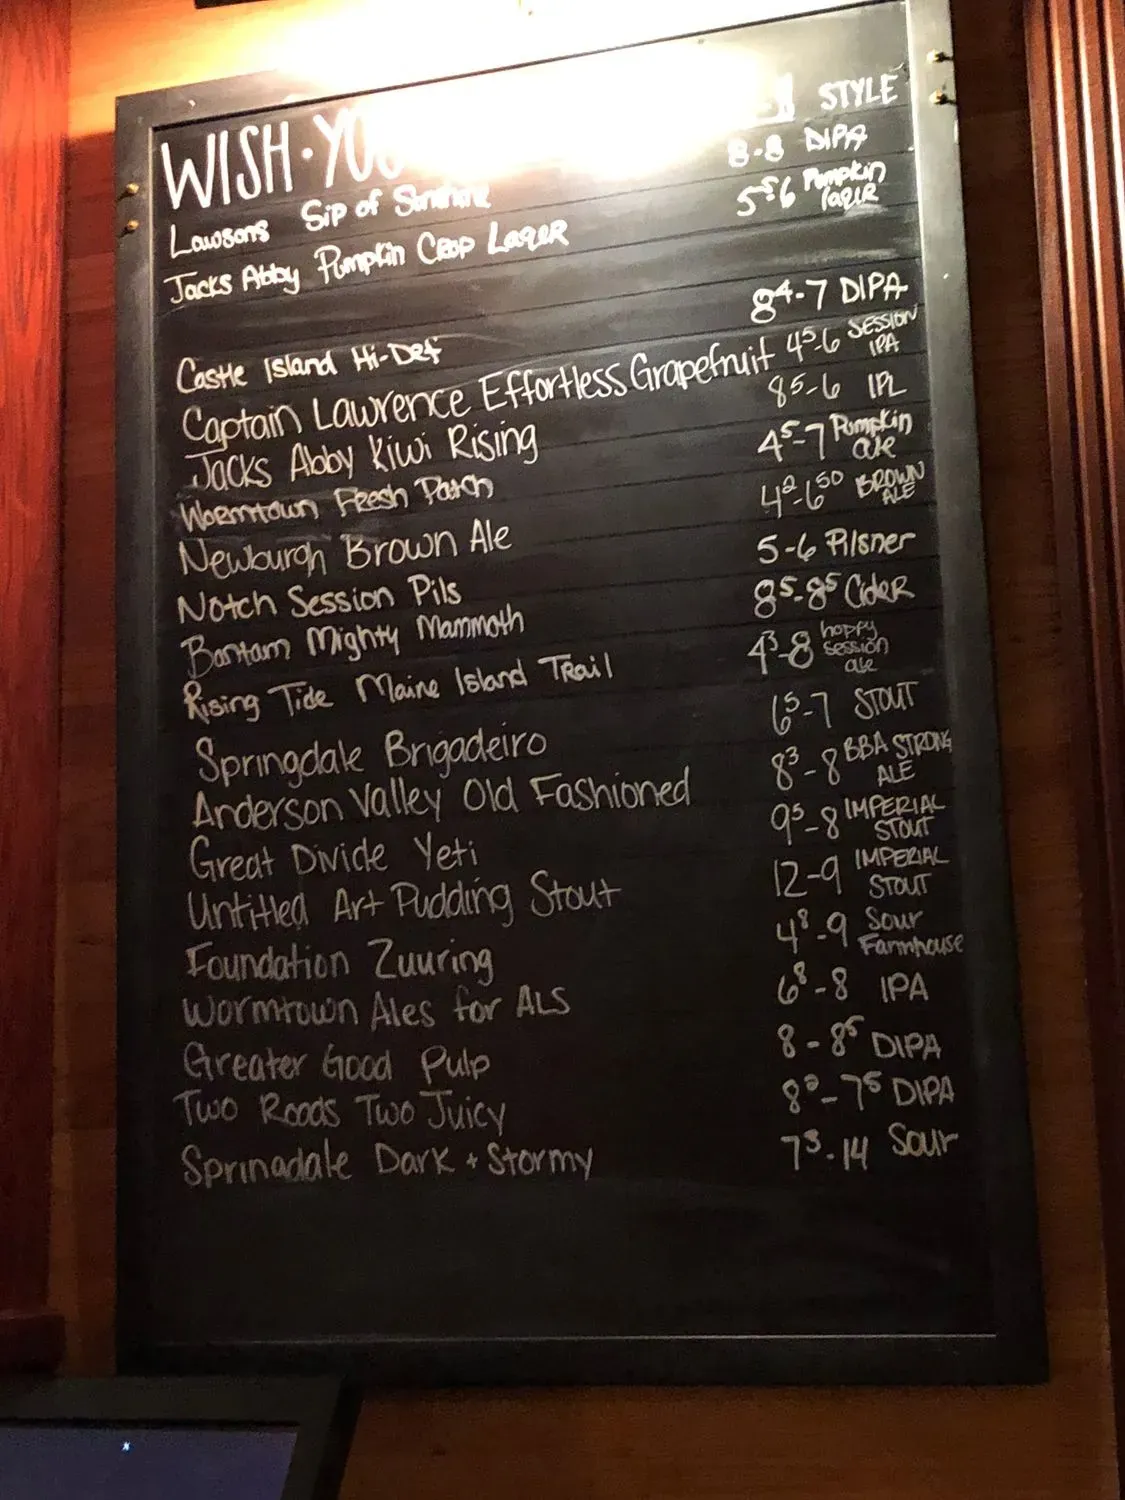 WISH · YOU STYLE
Lawsons Sip of Sunshine 8-8 DIPA
Jacks Abby Pumpkin Crop Lager 5⁵-6 Pumpkin lager
Castle Island Hi-Def 8⁴-7 DIPA
Captain Lawrence Effortless Grapefruit 4⁵-6 SESSION IPA
Jacks Abby Kiwi Rising 8⁵-6 IPL
Wormtown Fresh Patch 4⁵-7 Pumpkin ale
Newburgh Brown Ale 4²-6⁵⁰ BROWN ALE
Notch Session Pils 5-6 Pilsner
Bantam Mighty Mammoth 8⁵-8⁵ Cider
Rising Tide Maine Island Trail 4³-8 hoppy session ale
Springdale Brigadeiro 6⁵-7 STOUT
Anderson Valley Old Fashioned 8³-8 BBA STRONG ALE
Great Divide Yeti 9⁵-8 IMPERIAL STOUT
Untitled Art Pudding Stout 12-9 IMPERIAL STOUT
Foundation Zuuring 4⁸-9 Sour Farmhouse
Wormtown Ales for ALS 6⁸-8 IPA
Greater Good Pulp 8-8⁵ DIPA
Two Roads Two Juicy 8²-7⁵ DIPA
Springdale Dark + Stormy 7³-14 Sour